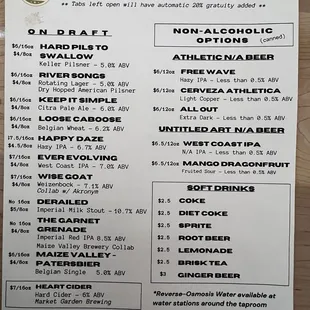 ** Tabs left open will have automatic 20% gratuity added **
ON DRAFT
$6/16oz HARD PILS TO
$4/8oz SWALLOW
Keller Pilsner - 5.0% ABV
$6/16oz RIVER SONGS
$4/8oz Rotating Lager - 5.0% ABV
Dry Hopped American Pilsner
$6/16oz KEEP IT SIMPLE
$4/8oz Citra Pale Ale - 6.0% ABV
$6/16oz LOOSE CABOOSE
$4/8oz Belgian Wheat - 6.2% ABV
$7.5/16oz HAPPY DAZE
$4.5/8oz Hazy IPA - 6.7% ABV
$7/16oz EVER EVOLVING
$4/8oz West Coast IPA - 7.0% ABV
$7/16oz WISE GOAT
$4/8oz Weizenbock - 7.1% ABV
Collab w/ Akronym
No 16oz DERAILED
$5/8oz Imperial Milk Stout - 10.7% ABV
No 16oz THE GARNET
GRENADE
Imperial Red IPA 8.5% ABV
Maize Valley Brewery Collab
$6/16oz MAIZE VALLEY -
$4/8oz PATERSBIER
Belgian Single 5.0% ABV
$7/16oz HEART CIDER
Hard Cider - 6% ABV
Market Garden Brewing
NON-ALCOHOLIC
OPTIONS (canned)
ATHLETIC N/A BEER
$6/12oz FREE WAVE
Hazy IPA - Less than 0.5% ABV
$6/12oz CERVEZA ATHLETICA
Light Copper - Less than 0.5% ABV
$6/12oz ALL OUT
Extra Dark - Less than 0.5% ABV
UNTITLED ART N/A BEER
$6.5/12oz WEST COAST IPA
N/A IPA - Less than 0.5% ABV
$6.5/12oz MANGO DRAGONFRUIT
Fruited Sour - Less than 0.5% ABV
SOFT DRINKS
$2.5 COKE
$2.5 DIET COKE
$2.5 SPRITE
$2.5 ROOT BEER
$2.5 LEMONADE
$2.5 BRISK TEA
$3 GINGER BEER
*Reverse-Osmosis Water available at
water stations around the taproom